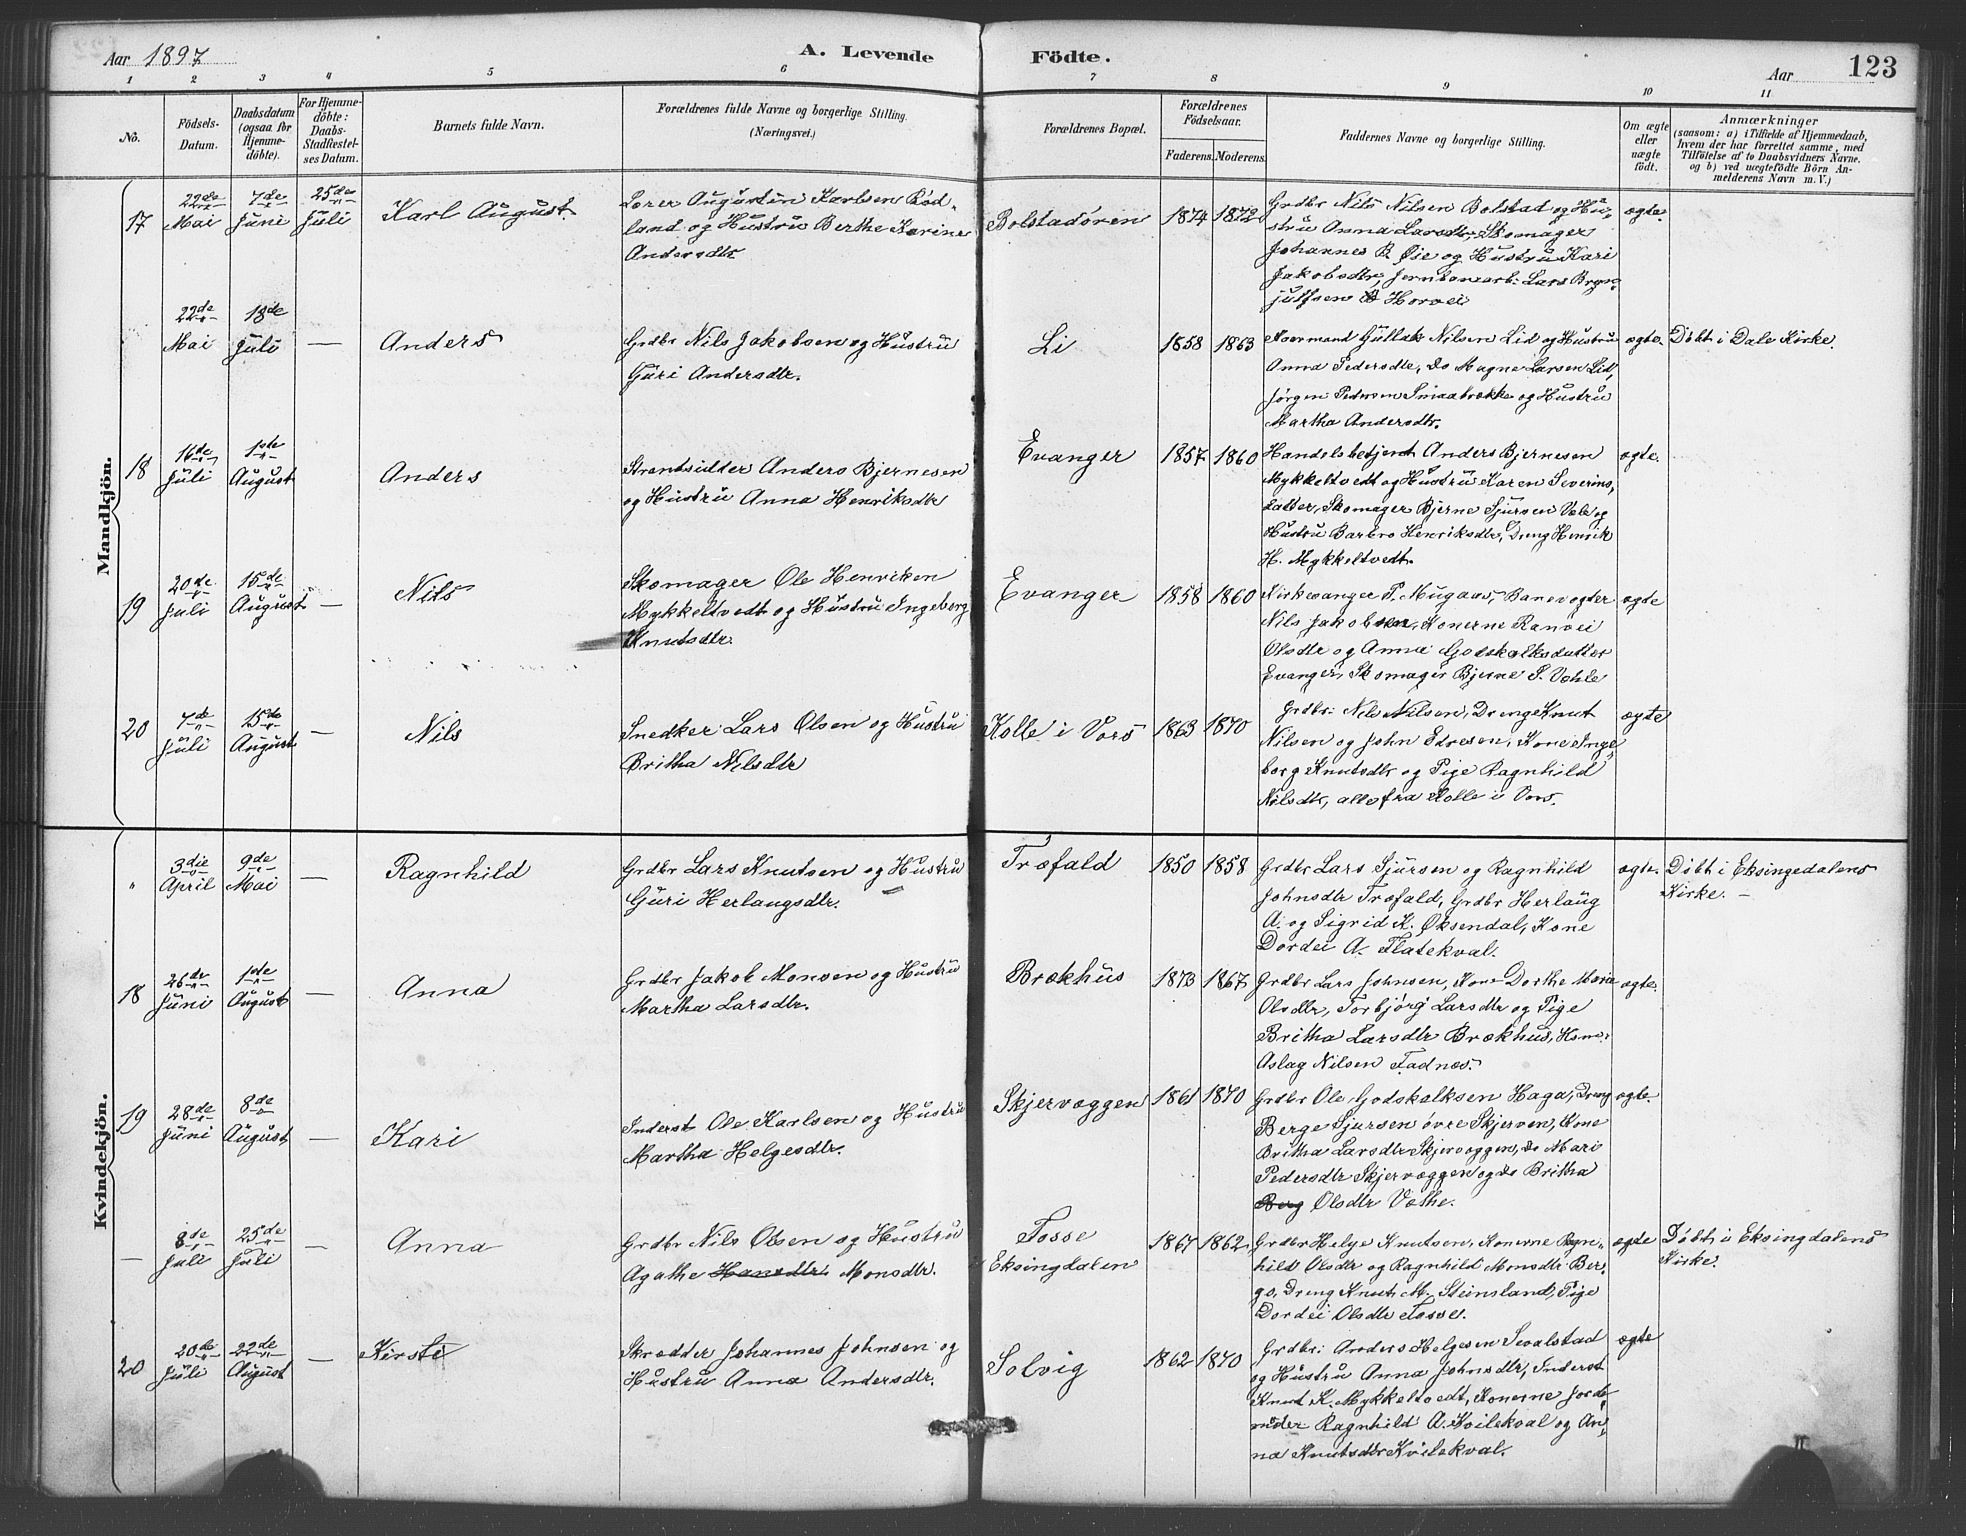 Aar 1897
A. Levende
Födte.
Aar
123
1 2 3 4 5 6 7 8 9 10 11
No.
Födsels-
Datum.
Daabsdatum
(ogsaa for
Hjemme-
döbte).
For Hjemme-
döbte:
Daabs-
Stadfæstel-
ses Datum.
Barnets fulde Navn.
Forældrenes fulde Navne og borgerlige Stilling.
(Næringsvei.)
Forældrenes Bopæl.
Forældrenes
Födselsaar.
Faderens. Moderens.
Faddernes Navne og borgerlige Stilling.
Om ægte
eller
uægte
födt.
Anmærkninger
(saasom: a) i Tilfælde af Hjemmedaab,
hvem der har forrettet samme, med
Tilföielse af to Daabsvidners Navne.
og b) ved uægtefödte Börn An-
melderens Navn m. V.)
Mandkjön.
17
22de
Mai
7de
Juni
25de
Juli
Karl August
Lærer Augustin Karlsen Rød-
land og Hustru Berthe Karine
Andersdtr.
Bolstadøren
1874 1872
Grdbr Nils Nilsen Bolstad og Hu-
stru Anna Larsdtr, Skomager
Johannes B. Øie og Hustru Kari
Jakobsdtr, Jernbanearb: Lars Bryn-
julfsen Horvei
ægte.
22de
Mai
18de
Juli
—
Anders
Grdbr Nils Jakobsen og Hustru
Guri Andersdtr.
Li
1858 1863
Gullak Nilsen Lid og Hustru
Anna Pedersdtr, do Magne Larsen Lid,
Jørgen Pedersen Smaabrække og Hustru
Martha Andersdtr.
ægte.
Döbt i Dale Kirke.
18
16de
Juli
1ste
August
Anders
Strandsidder Anders Bjernesen
og Hustru Anna Henriksdtr
Evanger
1857 1860
Handelsbetjent Anders Bjernesen
Mykkeltvedt og Hustru Karen Severins-
datter, Skomager Bjerne Sjursen Væle og
Hustru Barbro Henriksdtr, Dreng Henrik
H. Mykkeltvedt.
ægte.
19
20de
Juli
15de
August
—
Nils
Skomager Ole Henriken
Mykkeltvedt og Hustru Ingeborg
Knutsdtr.
Evanger
1858 1860
Kirkesanger P. Mugaas, Banevogter
Nils Jakobsen, Konerne Ranvei
Olsdtr og Anna Godskalksdatter
Evanger, Skomager Bjerne S. Væhle
ægte
20
7de
Juli
15de
August
—
Nils
Snedker Lars Olsen og Hustru
Britha Nilsdtr
Kolle i Vors
1863 1870
Grdbr: Nils Nilsen, Dreng Knut
Nilsen og John Edresen, Kone Inge-
borg Knutsdtr og Pige Ragnhild
Nilsdtr, alle fra Kolle i Vors.
ægte
Kvindekjön.
"
3die
April
9de
Mai
—
Ragnhild
Grdbr Lars Knutsen og Hustru
Guri Herlaugsdtr.
Træfald
1850 1858
Grdbr Lars Sjursen og Ragnhild
Johnsdtr Træfald, Grdbr Herlaug
A. og Sigrid K. Øksendal, Kone
Dordei A. Flatekval.
ægte.
Döbt i Eksingedalens
Kirke. —
18
26de
Juni
1ste
August
—
Anna
Grdbr Jakob Monsen og Hustru
Martha Larsdtr.
Brækhus
1873 1867
Grdbr Lars Johnsen, Kone Dorthe Maria
Olsdtr, Torbjørg Larsdtr og Pige
Britha Larsdtr Brækhus, Kone.
Aslag Nilsen Fadnæs.
ægte.
19
28de
Juni
8de
August
—
Kari
Inderst Ole Karlsen og Hustru
Martha Helgesdtr.
Skjervæggen
1861 1870
Grdbr Ole Godskalksen Haga, Dreng
Berge Sjursen øvre Skjerven, Kone
Britha Larsdtr Skjervæggen, do Mari
Pedersdtr Skjervæggen og do Britha
Berg Olsdtr Væthe.
ægte.
—
8de
Juli
25de
Juli
—
Anna
Grdbr Nils Olsen og Hustru
Agathe Hansdtr Monsdtr.
Fosse
Eksingdalen
1867 1862
Grdbr Helge Knutsen, Konerne Ragn-
hild Olsdtr og Ragnhild Monsdtr Ber-
ge, Dreng Knut M. Steinsland, Pige
Dordei Olsdtr Fosse.
ægte
Döbt i Eksingdalens
Kirke.
20
20de
Juli
22de
August
—
Kirsti
Skrædder Johannes Johnsen og
Hustru Anna Andersdtr.
Solvig
1862 1870
Grdbr: Anders Helgesen Sevalstad
og Hustru Anna Johnsdtr, Inderst
Knut K. Mykkeltvedt, Konerne Jorde-
moder Ragnhild A. Kvilekval og An-
na Knutsdtr Kvilekval.
ægte